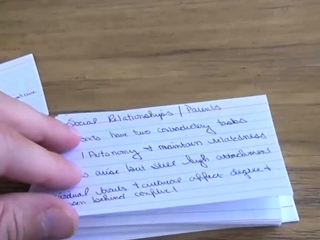 Social Relationships / Parents
have two contradictory tasks
! Autonomy & maintain relatedness
arise but still high attachment
traits & cultural affect degree &
behind conflict!